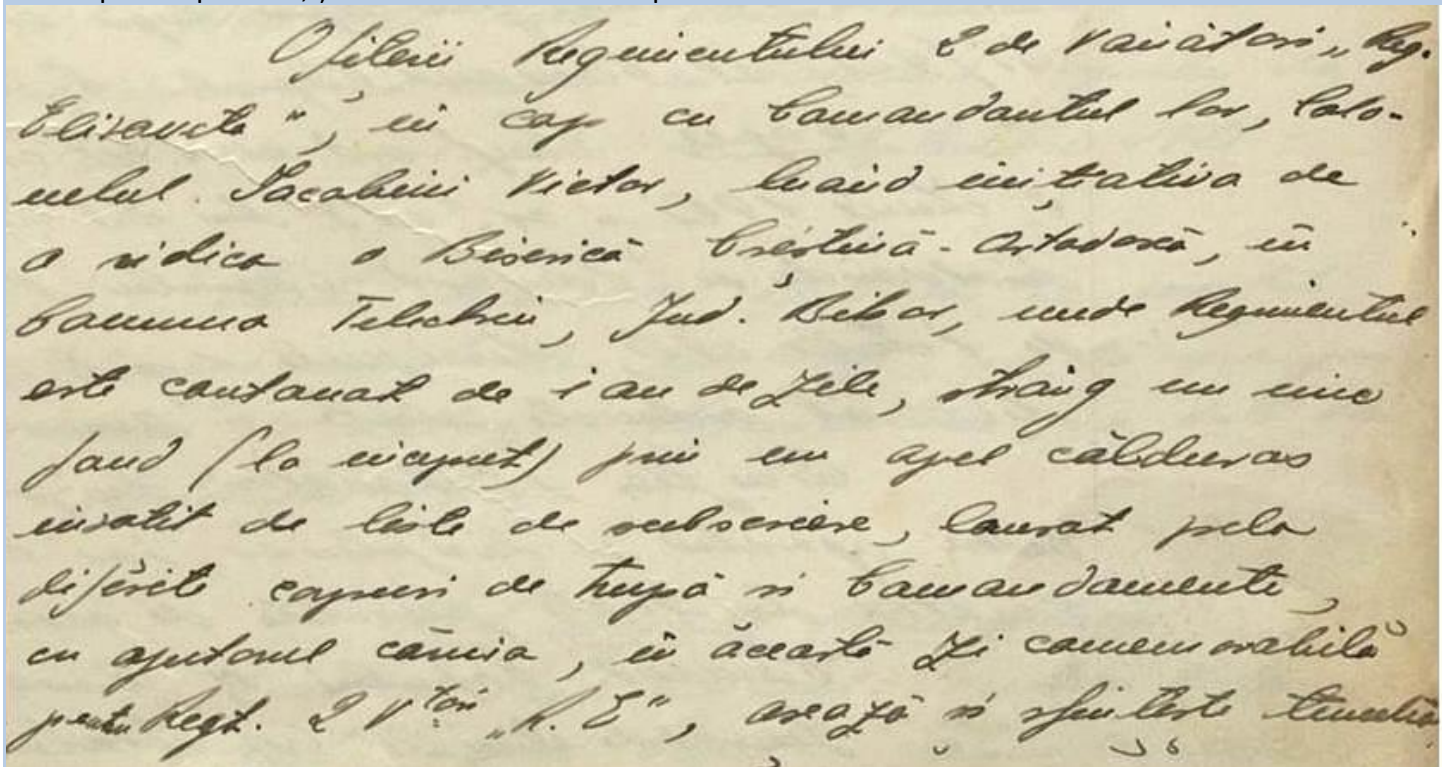 Ofițerii Regimentului 2 de Vânători „Reg.
Elisaveta", în cap cu Comandantul lor, Colo-
nelul Iacobini Victor, luând inițiativa de
a ridica o Biserică Creștină-Ortodoxă, în
Comuna Tilechiu, Jud. Bihor, unde Regimentul
este cantonat de 1 an de zile, strâng un mic
fond (la început) prin un apel călduros
însoțit de liste de subscriere, lansat pela
diferite corpuri de trupă si Comandamente,
cu ajutorul căruia, în această zi comemorabilă
pentru Regt. 2 V^tori „R.E", asează si sfințește temelia